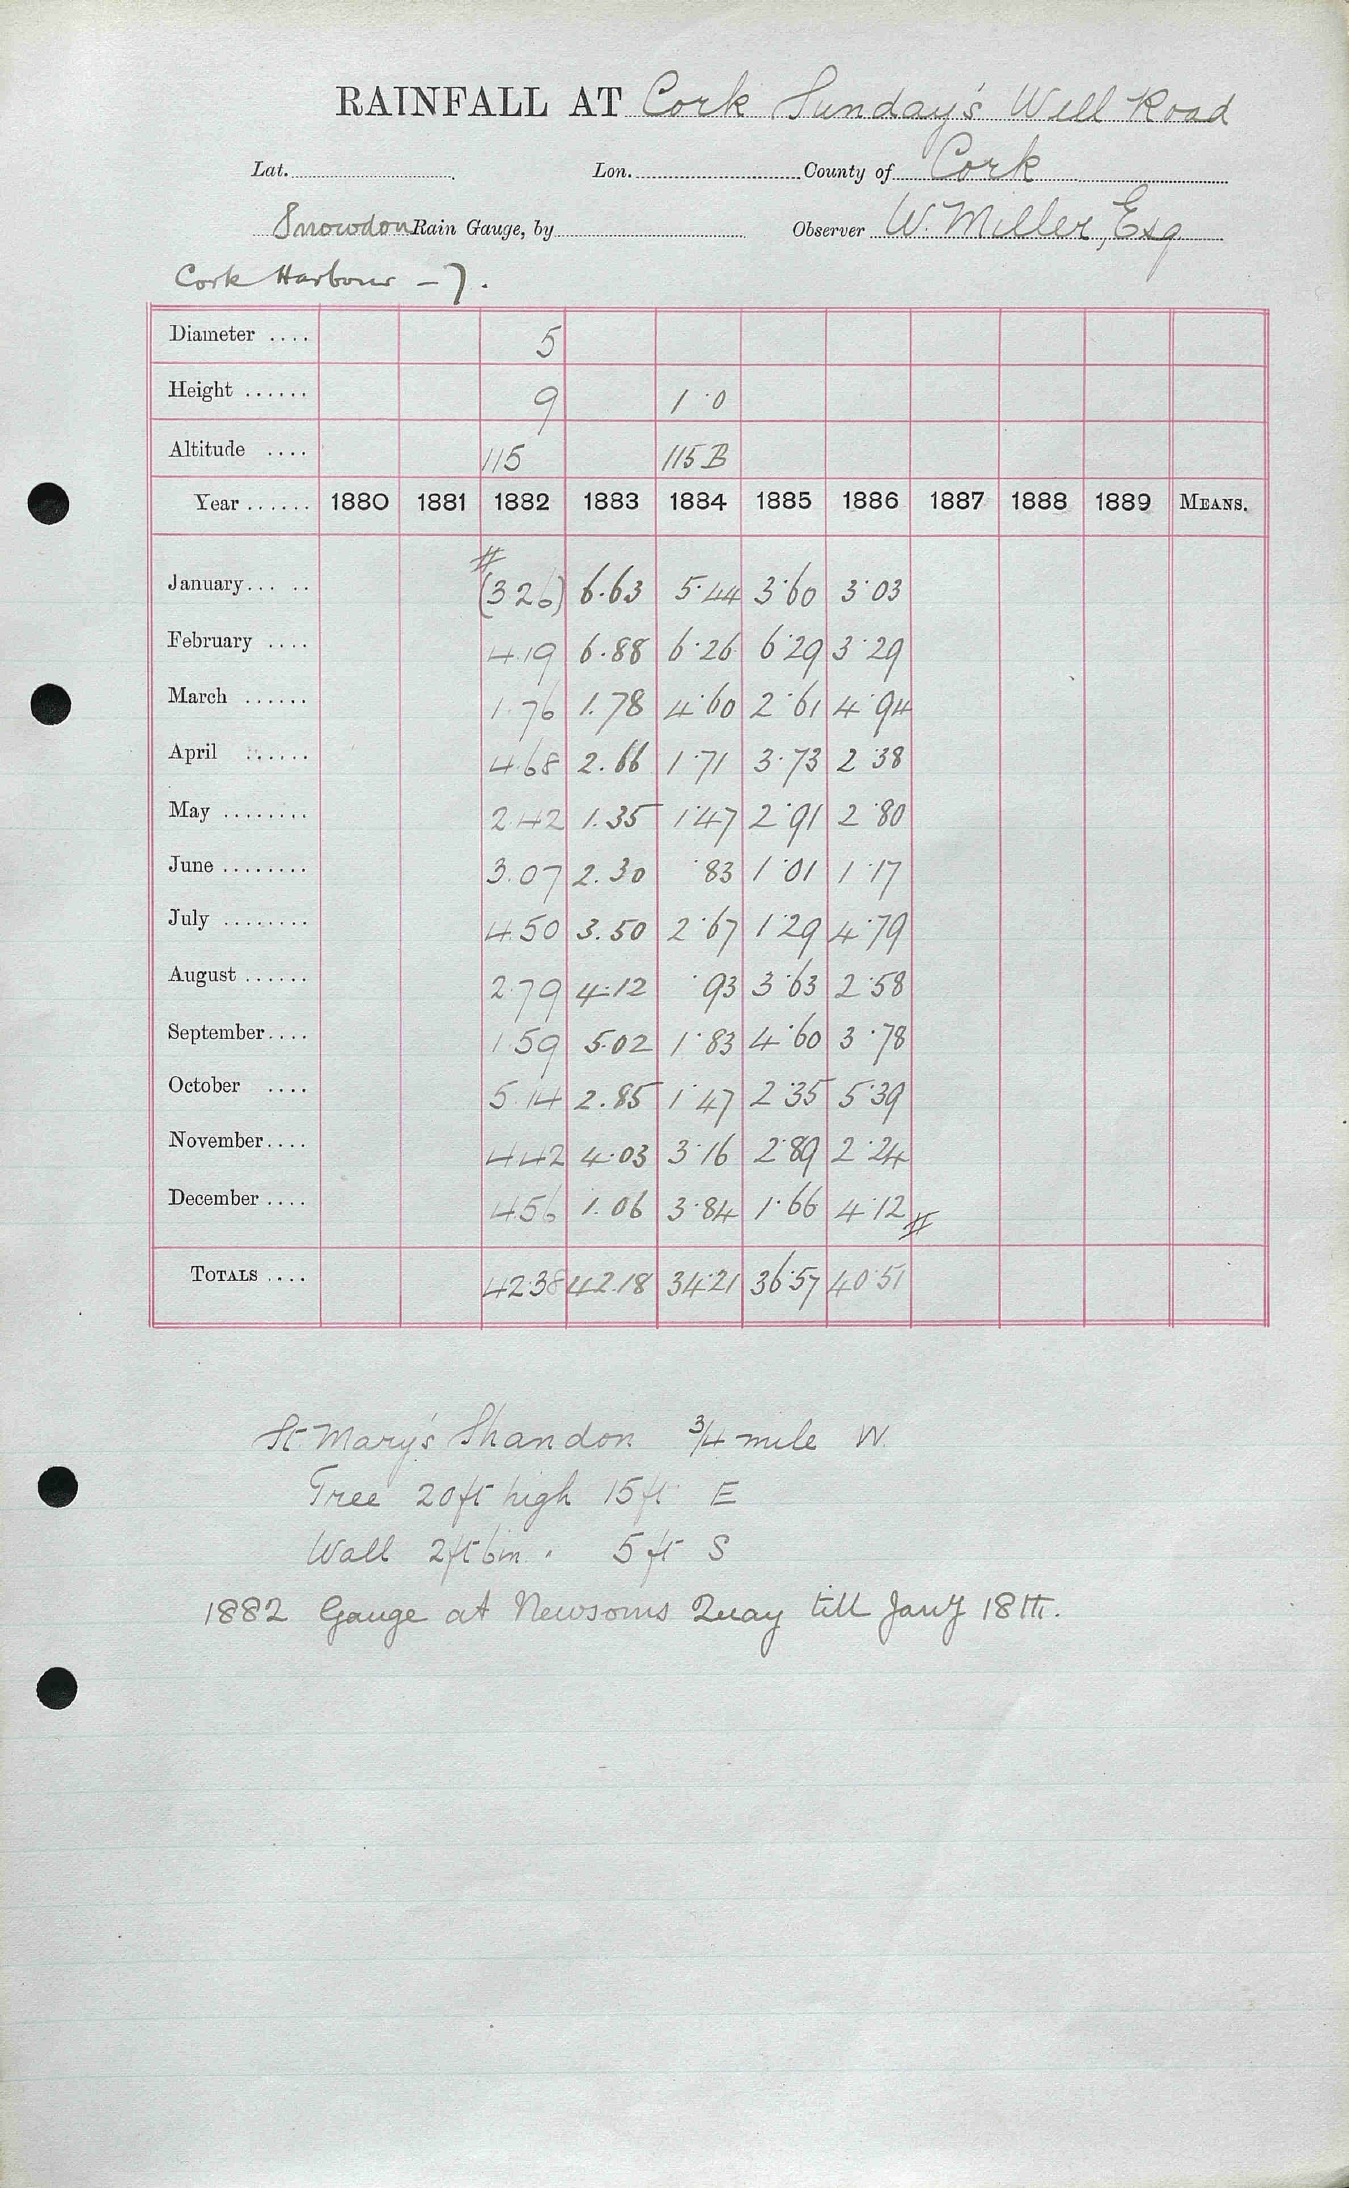 RAINFALL AT Cork Sunday's Well Road
Lat. Lon. County of Cork
Snowdon Rain Gauge, by Observer W. Miller, Esq
Cork Harbour – 7.
Diameter .... 5
Height ...... 9 1·0
Altitude .... 115 115 B
Year ...... 1880 1881 1882 1883 1884 1885 1886 1887 1888 1889 MEANS.
#
January... .. (3 26) 6.63 5·44 3·60 3·03
February .... 4.19 6.88 6·26 6·29 3·29
March ...... 1.76 1.78 4·60 2·61 4·94
April ...... 4.68 2.66 1·71 3·73 2·38
May ........ 2.42 1.35 1·47 2·91 2·80
June ........ 3.07 2.30 ·83 1·01 1·17
July ........ 4.50 3.50 2·67 1·29 4·79
August ...... 2.79 4.12 ·93 3·63 2·58
September.... 1.59 5.02 1·83 4·60 3·78
October .... 5.14 2.85 1·47 2·35 5·39
November.... 4.42 4.03 3·16 2·89 2·24
December .... 4.56 1.06 3·84 1·66 4·12 #
TOTALS .... 42.38 42.18 34·21 36·57 40·51
St Mary's Shandon 3/4 mile W.
Tree 20ft high 15ft E
Wall 2ft 6in " 5ft S
1882 Gauge at Newsoms Quay till Jany 18th.